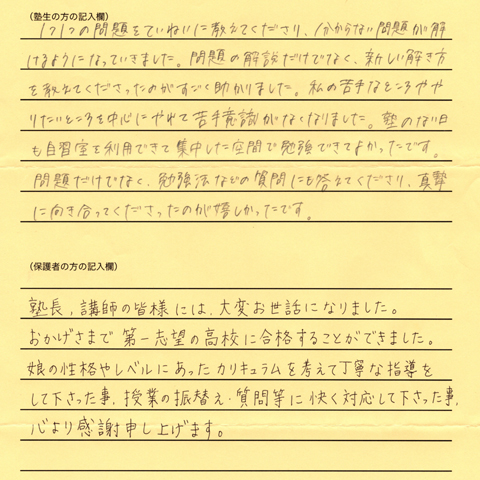 （塾生の方の記入欄）
1つ1つの問題をていねいに教えてくださり、分からない問題が解
けるようになっていきました。問題の解説だけでなく、新しい解き方
を教えてくださったのがすごく助かりました。私の苦手なところやや
りたいところを中心にやれて苦手意識がなくなりました。塾のない日
も自習室を利用できて集中した空間で勉強できてよかったです。
問題だけでなく、勉強法などの質問にも答えてくださり、真摯
に向き合ってくださったのが嬉しかったです。
（保護者の方の記入欄）
塾長、講師の皆様には、大変お世話になりました。
おかげさまで第一志望の高校に合格することができました。
娘の性格やレベルにあったカリキュラムを考えて丁寧な指導を
して下さった事、授業の振替え・質問等に快く対応して下さった事、
心より感謝申し上げます。